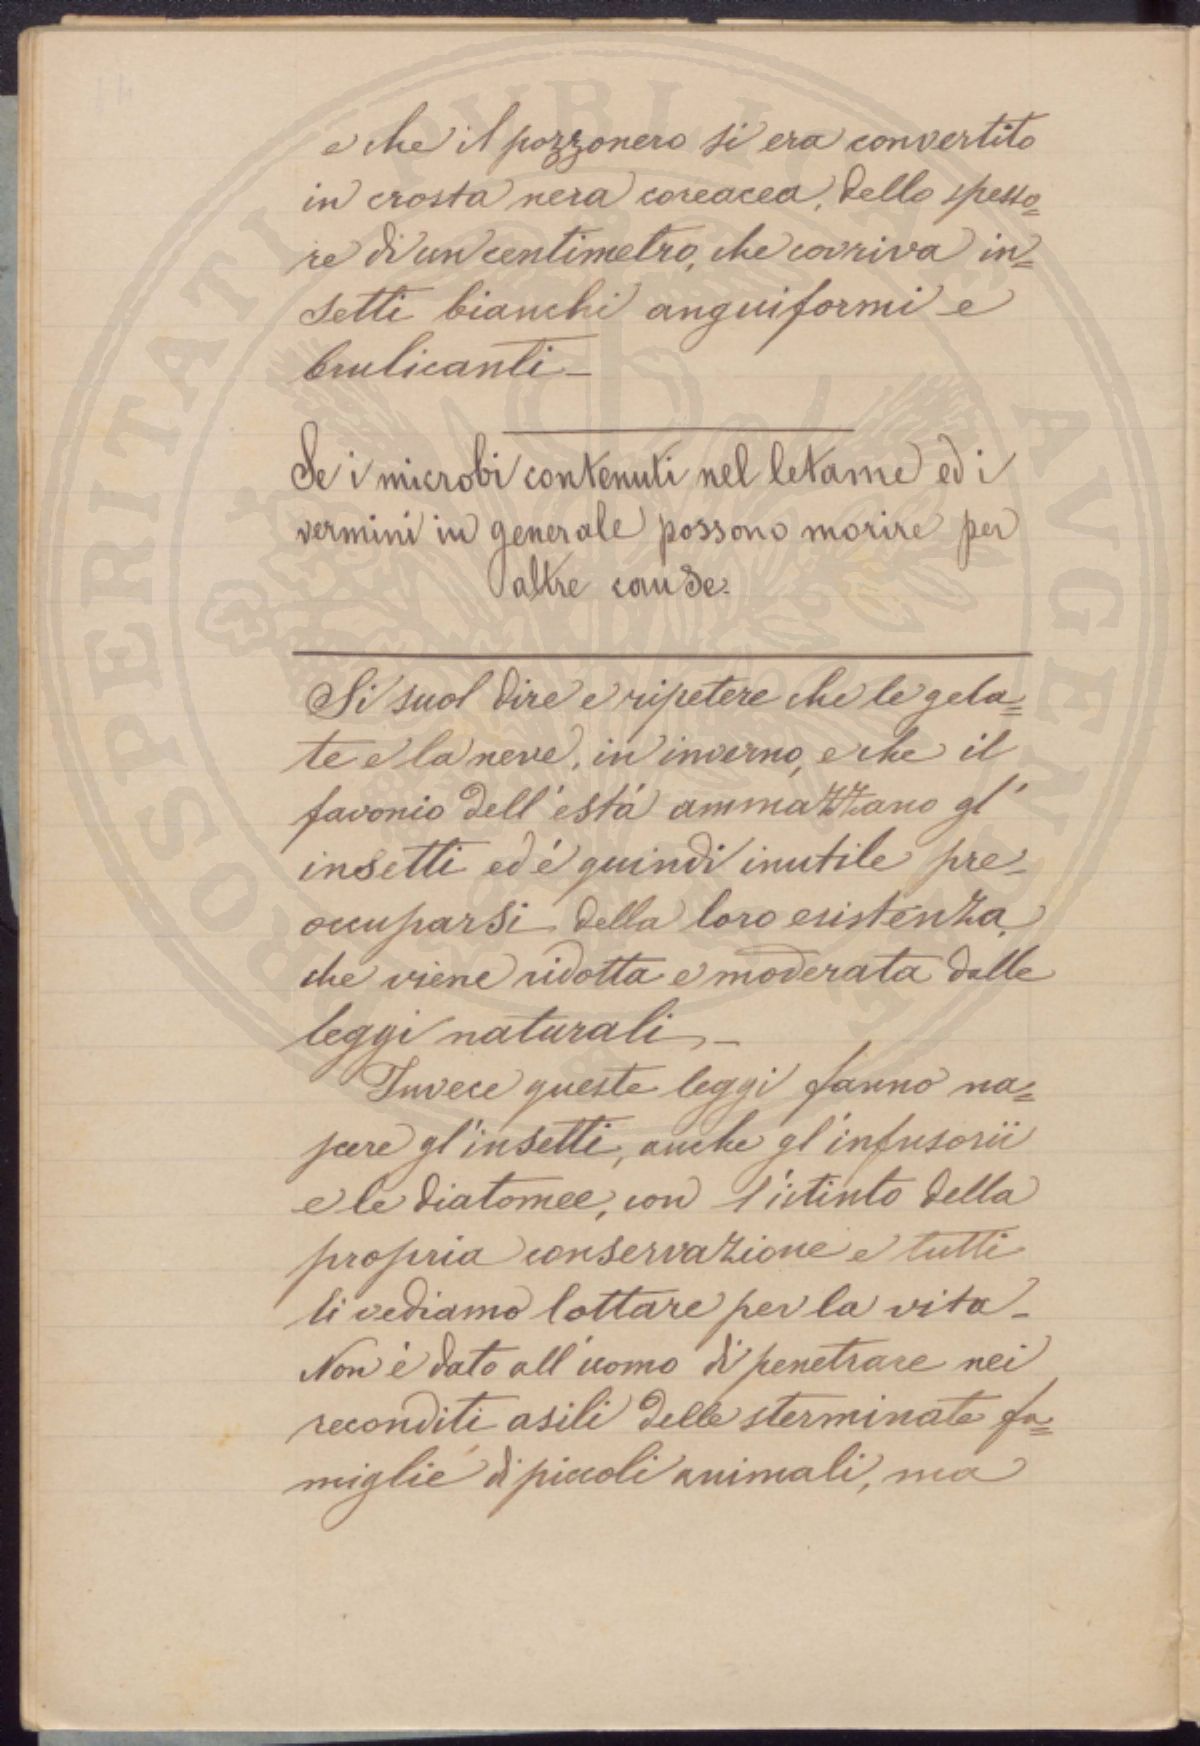 e che il pozzonero si era convertito
in crosta nera coreacea, dello spesso=
re di un centimetro, che covriva in=
setti bianchi anguiformi e
brulicanti_
Se i microbi contenuti nel letame ed i
vermini in generale possono morire per
altre cause.
Si suol dire e ripetere che le gela=
te e la neve, in inverno, e che il
favonio dell'está ammazzano gl'
insetti ed é quindi inutile pre-
occuparsi della loro esistenza,
che viene ridotta e moderata dalle
leggi naturali_
Invece queste leggi fanno na=
scere gl'insetti, anche gl'infusorii
e le diatomee, con l'istinto della
propria conservazione e tutti
li vediamo lottare per la vita_
Non é dato all'uomo di penetrare nei
reconditi asili delle sterminate fa=
miglie di piccoli animali, ma
PROSPERITATI PVBLICAE AVGENDAE